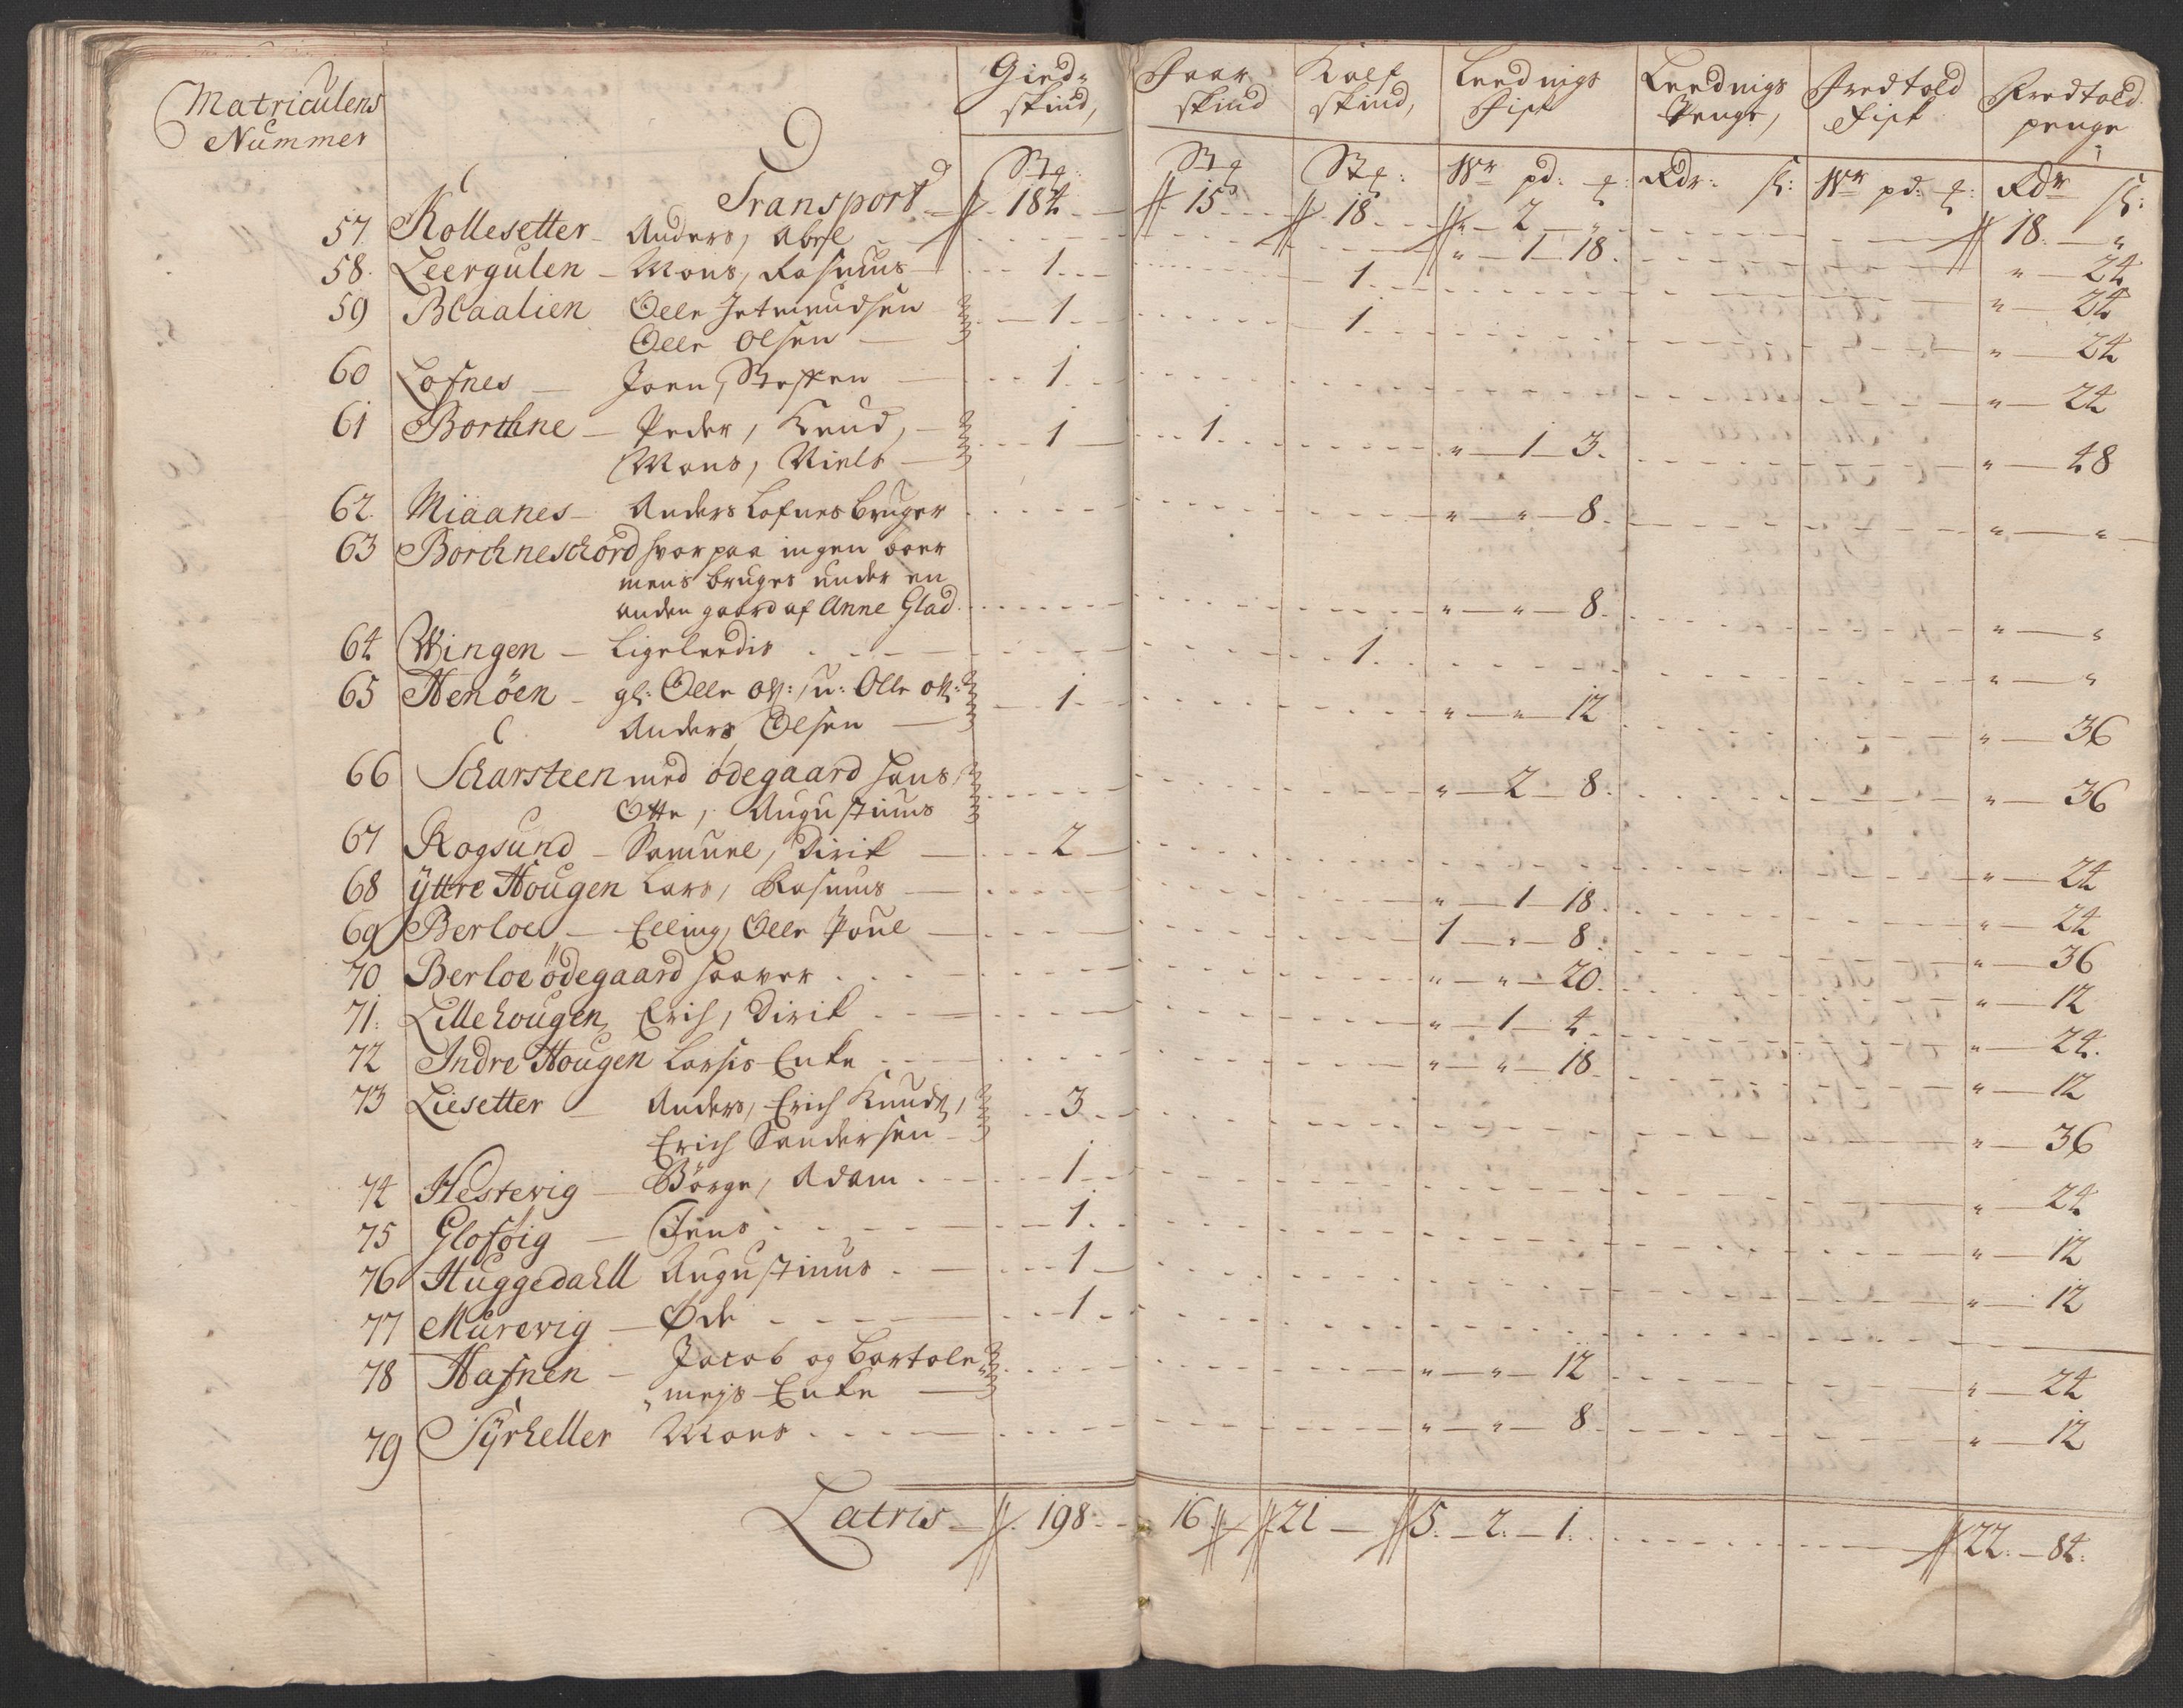 Matriculens Nummer | Giedskind, | Faar skind | Kalf skind, | Leednigs Fisk | Leednigs Penge, | Fredtold Fisk | Fredtold penge
Stq: | Stq | Stq: | W pd: q: | Rdr: s: | W pd: q: | Rdr s:
Transport 184 15 18 " 2 " 18 "
57. Kollesetter Anders, Abel " 1 18. " 24
58. Leergulen Mons, Rasmus 1 1 " 24
59 Blaalien Olle Jetmundsen
Olle Olsen 1 1 " 24
60 Lofnes Joen, Steffen 1 " 24
61 Borchne Peder, Knud,
Mons, Niels 1 1 " 1 3. " 48
62. Miaanes Anders Lofnes bruger " " 8. " "
63 Borchneschord hvor paa ingen boer
mens bruges under en
anden gaard af Anne Glad " " 8. " "
64 Wingen Ligeleedis 1 " "
65 Henöen gl: Olle Ols: , u: Olle Ols:
Anders Olsen 1 " " 12 " 36
66 Scharsteen med ödegaard Hans,
Otte, Augustinus " 2 8. " 36
67 Rogsund Samuel, Dirik 2 " 24
68 ÿttre Hougen Lars, Rasmus " 1 18. " 24
69 Berloe Elling, Olle Poul 1 " 8. " 36
70 Berloe ödegaard Haaver " " 20. " 12
71. Lillehougen Erich, Dirik " 1 4. " 24.
72 Indre Hougen Larsis Enke " " 18. " 12
73 Liesetter Anders, Erich Knuds,
Erich Sandersen 3 " 36
74 Hestevig Börge, Adam 1 " 24
75 Gloföig Jens 1 " 12
76 Huggedahll Augustinus 1 " 12
77 Murevig Øde 1
78 Hafnen Jacob og Bartole
mejs Enke " " 12 " 24
79 Tÿrheller Mons " " 8. " 12
Latris 198 16 21 5. 2. 1. 22. 84.